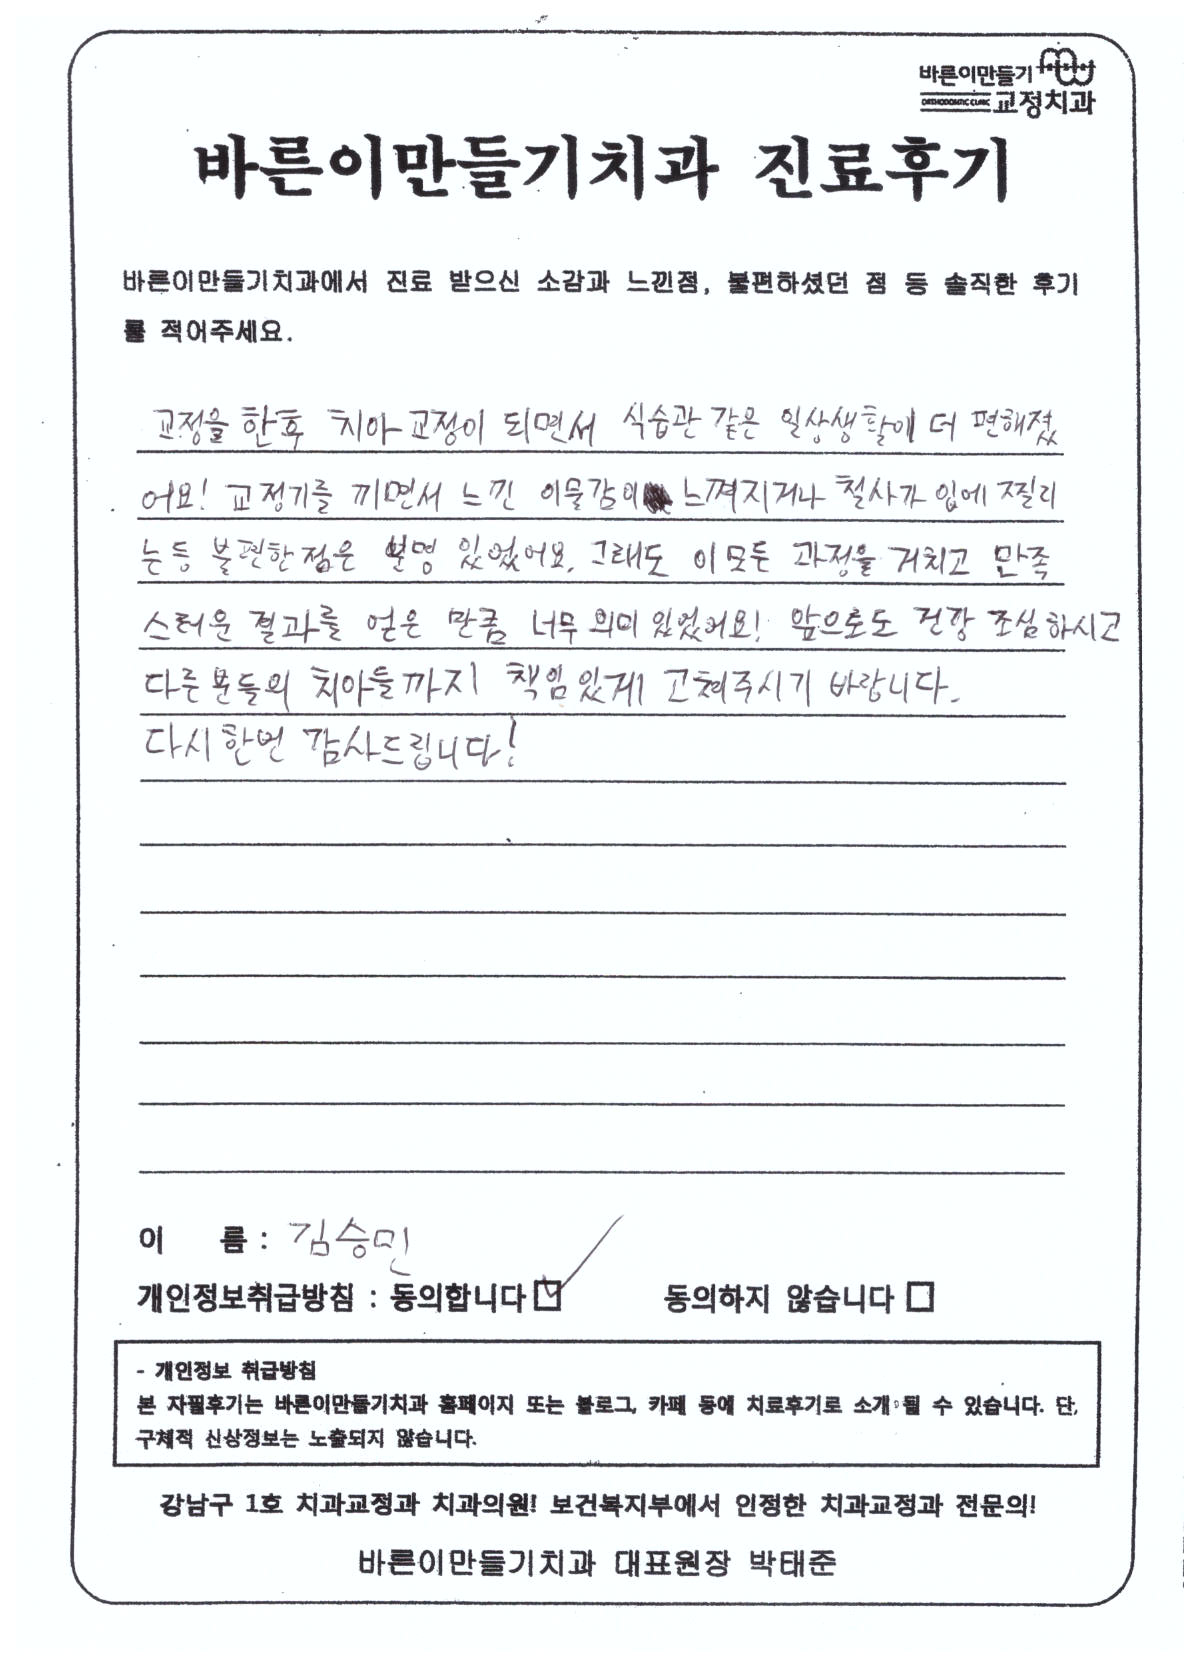 바른이만들기
ORTHODONTIC CLINIC 교정치과
바른이만들기치과 진료후기
바른이만들기치과에서 진료 받으신 소감과 느낀점, 불편하셨던 점 등 솔직한 후기
를 적어주세요.
교정을 한후 치아교정이 되면서 식습관 같은 일상생활에 더 편해졌
어요! 교정기를 끼면서 느낀 이물감이 느껴지거나 철사가 입에 찔리
는등 불편한 점은 분명 있었어요. 그래도 이 모든 과정을 거치고 만족
스러운 결과를 얻은 만큼 너무 의미 있었어요! 앞으로도 건강 조심하시고
다른 분들의 치아들까지 책임있게 고쳐주시기 바랍니다.
다시한번 감사드립니다!
이 름 : 김승민
개인정보취급방침 : 동의합니다 ☑ 동의하지 않습니다 □
- 개인정보 취급방침
본 자필후기는 바른이만들기치과 홈페이지 또는 블로그, 카페 등에 치료후기로 소개 될 수 있습니다. 단,
구체적 신상정보는 노출되지 않습니다.
강남구 1호 치과교정과 치과의원! 보건복지부에서 인정한 치과교정과 전문의!
바른이만들기치과 대표원장 박태준